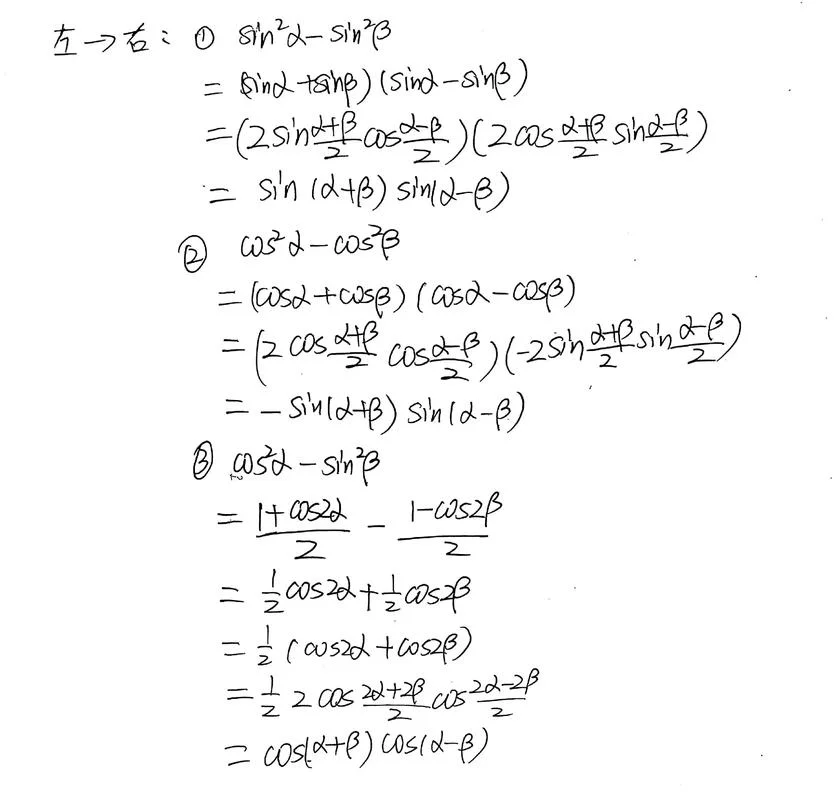 左→右: ① sin²α-sin²β
= (sinα+sinβ)(sinα-sinβ)
= (2sin\frac{α+β}{2}cos\frac{α-β}{2})(2cos\frac{α+β}{2}sin\frac{α-β}{2})
= sin(α+β)sin(α-β)
② cos²α-cos²β
= (cosα+cosβ)(cosα-cosβ)
= (2cos\frac{α+β}{2}cos\frac{α-β}{2})(-2sin\frac{α+β}{2}sin\frac{α-β}{2})
= -sin(α+β)sin(α-β)
③ cos²α-sin²β
= \frac{1+cos2α}{2} - \frac{1-cos2β}{2}
= \frac{1}{2}cos2α+\frac{1}{2}cos2β
= \frac{1}{2}(cos2α+cos2β)
= \frac{1}{2}2cos\frac{2α+2β}{2}cos\frac{2α-2β}{2}
= cos(α+β)cos(α-β)